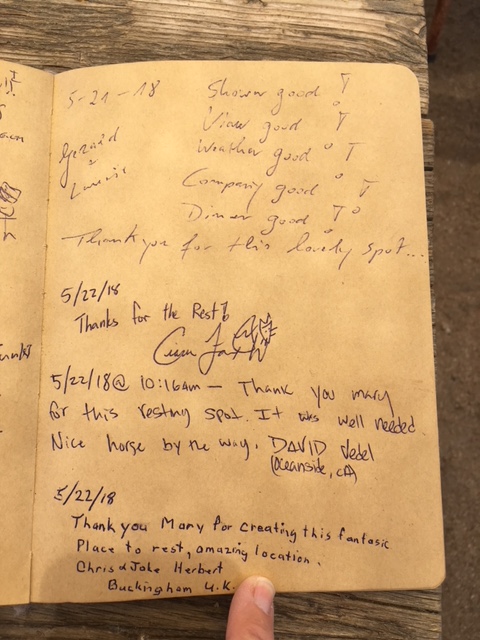 5-21-18 Shower good !
View good !
Gerard Weather good !
&
Company good !
Dinner good !
Thank you for this lovely spot...
5/22/18
Thanks for the Rest!
5/22/18 @ 10:16am — Thank you mary
for this resting spot. It was well needed.
Nice horse by the way. DAVID Vedel
(Oceanside, CA)
5/22/18
Thank you Mary for creating this fantasic
Place to rest, amazing location.
Chris & Jake Herbert
Buckingham U.K.